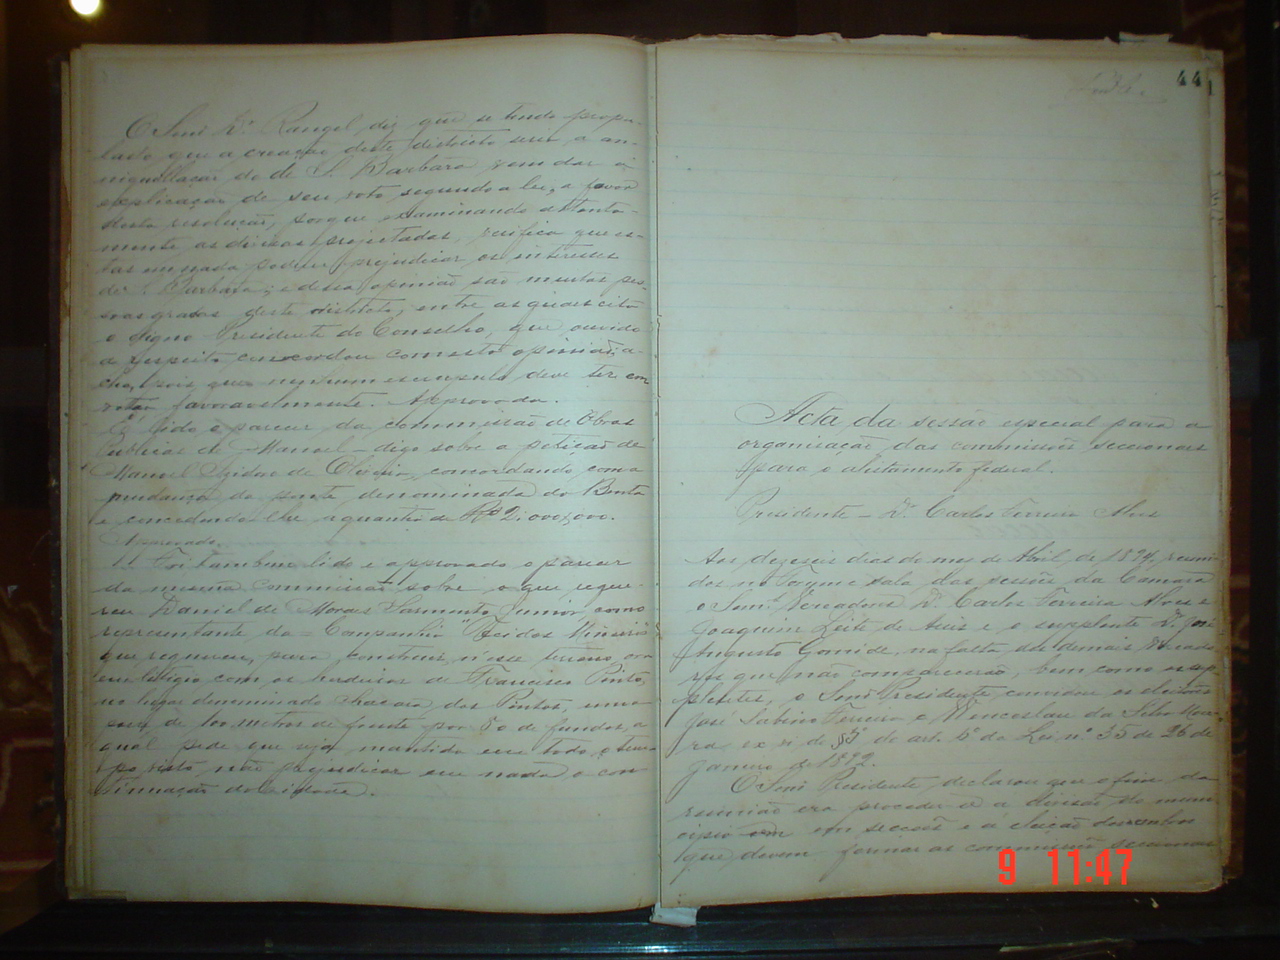 O Senr Dr Rangel diz que se tendo propa-
lado que a creação deste districto seria a an-
niquillação do de S. Barbara vem dar a
explicação de seu voto segundo a lei, a favor
desta resolução, porque examinando attenta-
mente as divisas projectadas, verifica que es-
tas em nada podem prejudicar os interesses
de S. Barbara; e dessa opinião são muitas pes-
soas gradas deste districto, entre as quaes cita
o digno Presidente do Conselho, que ouvido
a respeito concordou com esta opinião, a-
cha, pois que nenhum escrupulo deve ter em
votar favoravelmente. Approvada.
É lido o parecer da commissão de Obras
Publicas de Manoel - digo sobre a petição de
Manoel Izidoro de Oliveira, concordando com a
mudança da ponte denominada do
e concedendo lhe a quantia de Rs 2:000,000.
Approvado.
Foi tambem lido e approvado o parecer
da mesma commissão sobre o que reque-
reu Daniel de Moraes Sarmento Junior, como
representante da Companhia
que requereu, para construir, n'esse terreno, ora
em litigio com os herdeiros de Francisco Pinto,
no lugar denominado Chacara dos Pintos, uma
de 100 metros de frente por 50 de fundos, a
qual pede que seja mantida em todo o tem-
po visto não prejudicar em nada a con-
tinuação da cidade.
44
Acta da sessão especial para a
organisação das commissões seccionaes
para o alistamento federal.
Presidente - Dr. Carlos Ferreira Alves
Aos dezeseis dias do mez de Abril de 1894, reuni-
dos no Paço e sala das sessões da Camara
o Senr. Vereadores Dr. Carlos Ferreira Alves e
Joaquim Leite de Assis e o supplente Dr. José
Augusto Gomide, na falta dos demais Vereado-
res que não comparecerão, bem como os sup-
plentes, o Senr Presidente convidou os eleitores
José Sabino Ferreira e Wenceslau da Silva Mou-
ra, ex vi do §3º do art. 6º da Lei nº 35 de 26 de
Janeiro de 1892.
O Senr Presidente declarou que o fim da
reunião era proceder se a divisão do muni-
cipio em secções e á eleição dos membros
que devem formar as commissões seccionaes
9 11:47